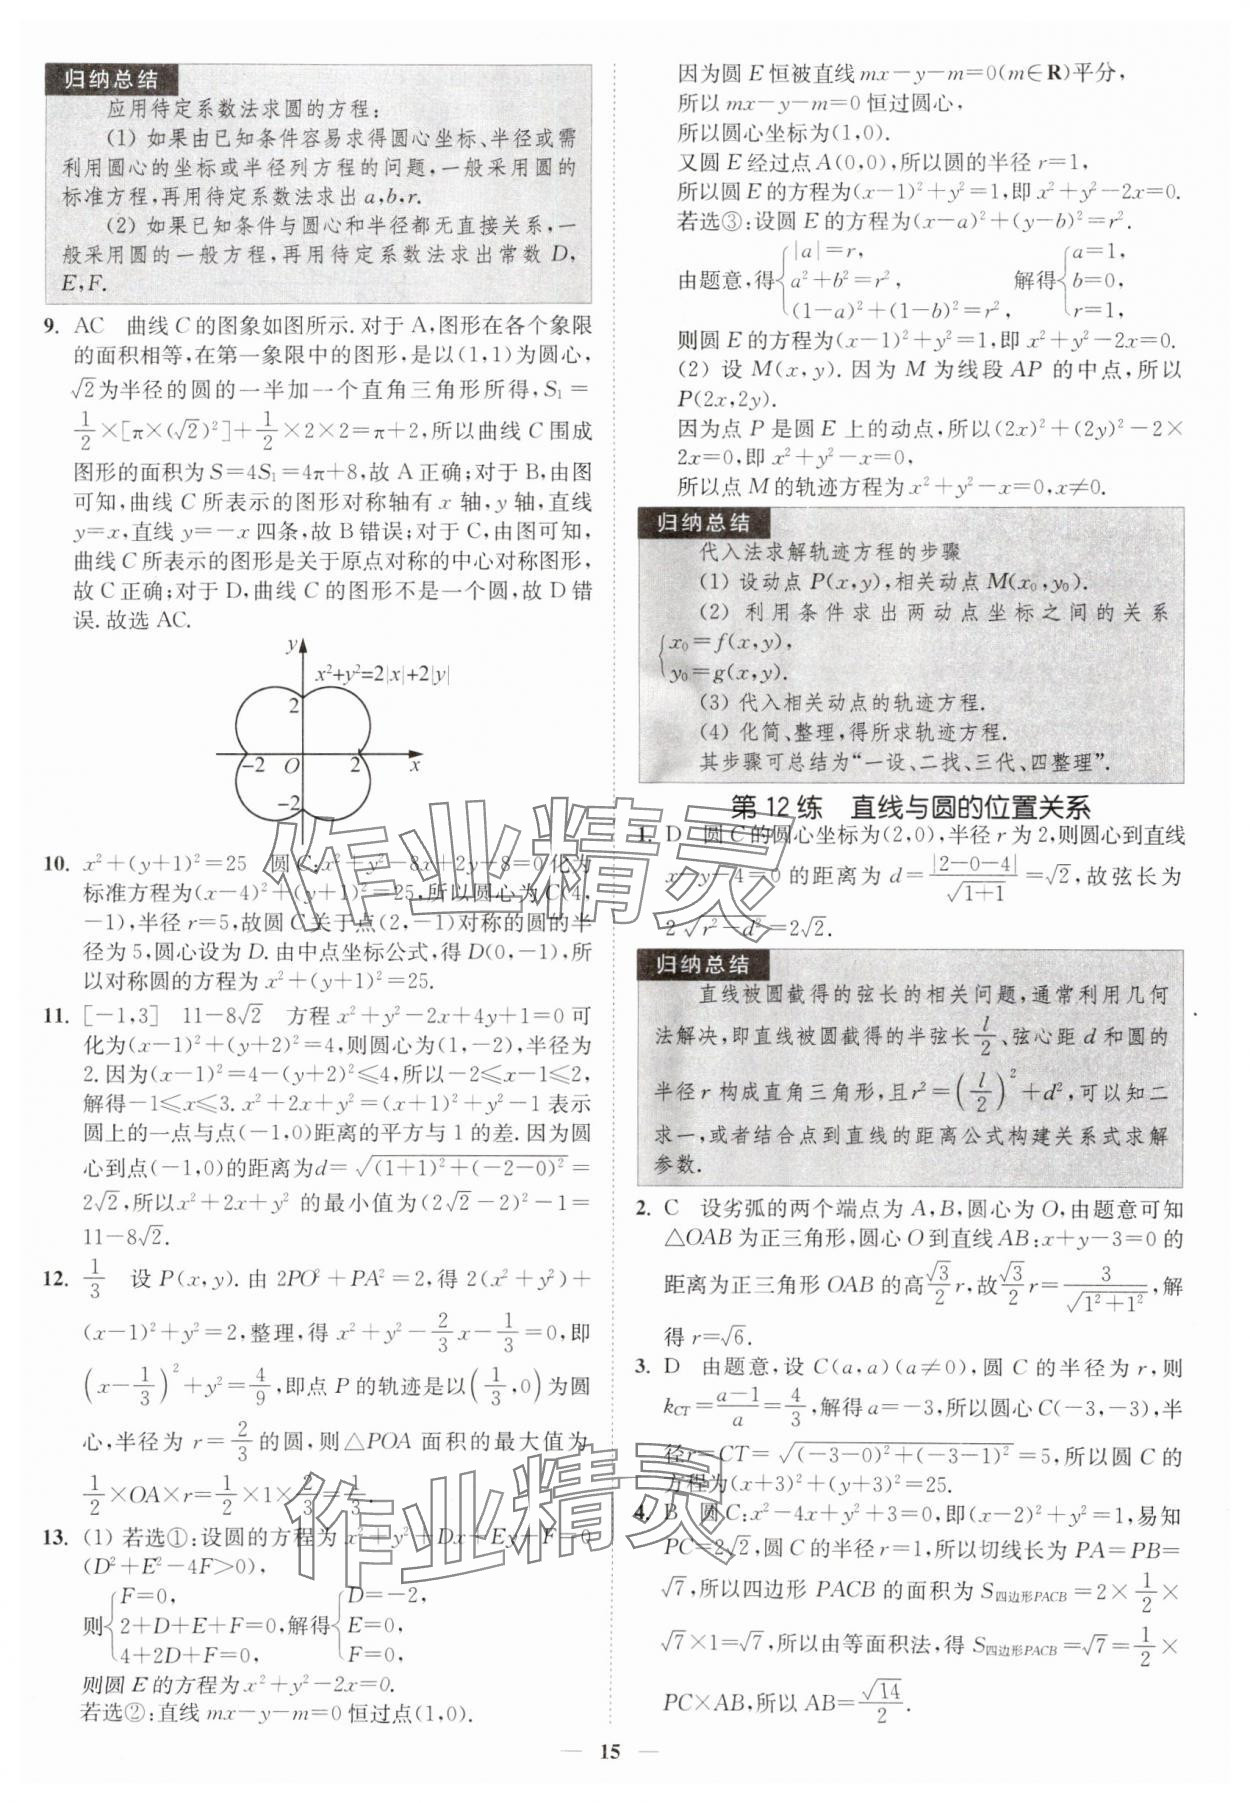 归纳总结
应用待定系数法求圆的方程:
(1) 如果由已知条件容易求得圆心坐标、半径或需
利用圆心的坐标或半径列方程的问题,一般采用圆的
标准方程,再用待定系数法求出 a,b,r.
(2) 如果已知条件与圆心和半径都无直接关系,一
般采用圆的一般方程,再用待定系数法求出常数 D,
E,F.
9. AC 曲线 C 的图象如图所示. 对于 A,图形在各个象限
的面积相等,在第一象限中的图形,是以(1,1)为圆心,
√2为半径的圆的一半加一个直角三角形所得,S₁=
1/2×[π×(√2)²]+1/2×2×2=π+2,所以曲线 C 围成
图形的面积为 S=4S₁=4π+8,故 A 正确;对于 B,由图
可知,曲线 C 所表示的图形对称轴有 x 轴,y 轴,直线
y=x,直线 y=-x 四条,故 B 错误;对于 C,由图可知,
曲线 C 所表示的图形是关于原点对称的中心对称图形,
故 C 正确;对于 D,曲线 C 的图形不是一个圆,故 D 错
误. 故选 AC.
y
x²+y²=2|x|+2|y|
2
-2 O 2 x
-2
10. x²+(y+1)²=25 圆 C:x²+y²-8x+2y-8=0 化为
标准方程为(x-4)²+(y+1)²=25,所以圆心为 C(4,
-1),半径 r=5,故圆 C 关于点(2,-1)对称的圆的半
径为 5,圆心设为 D. 由中点坐标公式,得 D(0,-1),所
以对称圆的方程为 x²+(y+1)²=25.
11. [-1,3] 11-8√2 方程 x²+y²-2x+4y+1=0 可
化为(x-1)²+(y+2)²=4,则圆心为(1,-2),半径为
2. 因为(x-1)²=4-(y+2)²≤4,所以-2≤x-1≤2,
解得-1≤x≤3. x²+2x+y²=(x+1)²+y²-1 表示
圆上的一点与点(-1,0)距离的平方与 1 的差. 因为圆
心到点(-1,0)的距离为d=√((1+1)²+(-2-0)²)=
2√2,所以x²+2x+y² 的最小值为(2√2-2)²-1=
11-8√2.
12. 1/3 设 P(x,y). 由 2PO²+PA²=2,得 2(x²+y²)+
(x-1)²+y²=2,整理,得 x²+y²-2/3x-1/3=0,即
(x-1/3)²+y²=4/9,即点 P 的轨迹是以(1/3,0)为圆
心,半径为 r=2/3的圆,则△POA 面积的最大值为
1/2×OA×r=1/2×1×2/3=1/3.
13. (1) 若选①:设圆的方程为 x²+y²+Dx+Ey+F=0
(D²+E²-4F>0),
则{F=0, 2+D+E+F=0, 4+2D+F=0, 解得{D=-2, E=0, F=0,
则圆 E 的方程为 x²+y²-2x=0.
若选②:直线 mx-y-m=0 恒过点(1,0).
因为圆 E 恒被直线 mx-y-m=0(m∈R)平分,
所以 mx-y-m=0 恒过圆心,
所以圆心坐标为(1,0).
又圆 E 经过点 A(0,0),所以圆的半径 r=1,
所以圆 E 的方程为(x-1)²+y²=1,即 x²+y²-2x=0.
若选③:设圆 E 的方程为(x-a)²+(y-b)²=r².
由题意,得{|a|=r, a²+b²=r², (1-a)²+(1-b)²=r², 解得{a=1, b=0, r=1,
则圆 E 的方程为(x-1)²+y²=1,即 x²+y²-2x=0.
(2) 设 M(x,y). 因为 M 为线段 AP 的中点,所以
P(2x,2y).
因为点 P 是圆 E 上的动点,所以(2x)²+(2y)²-2×
2x=0,即 x²+y²-x=0,
所以点 M 的轨迹方程为 x²+y²-x=0,x≠0.
归纳总结
代入法求解轨迹方程的步骤
(1) 设动点 P(x,y),相关动点 M(x₀,y₀).
(2) 利用条件求出两动点坐标之间的关系
{x₀=f(x,y),
y₀=g(x,y).
(3) 代入相关动点的轨迹方程.
(4) 化简、整理,得所求轨迹方程.
其步骤可总结为“一设、二找、三代、四整理”.
第 12 练 直线与圆的位置关系
1. D 圆 C 的圆心坐标为(2,0),半径 r 为 2,则圆心到直线
x-y-4=0 的距离为 d=|2-0-4|/√(1+1)=√2,故弦长为
2√(r²-d²)=2√2.
归纳总结
直线被圆截得的弦长的相关问题,通常利用几何
法解决,即直线被圆截得的半弦长l/2、弦心距 d 和圆的
半径 r 构成直角三角形,且r²=(l/2)²+d²,可以知二
求一,或者结合点到直线的距离公式构建关系式求解
参数.
2. C 设劣弧的两个端点为 A,B,圆心为 O,由题意可知
△OAB 为正三角形,圆心 O 到直线 AB:x+y-3=0 的
距离为正三角形 OAB 的高√3/2r,故√3/2r=3/√(1²+1²),解
得 r=√6.
3. D 由题意,设 C(a,a)(a≠0),圆 C 的半径为 r,则
k_CT=(a-1)/a=4/3,解得 a=-3,所以圆心 C(-3,-3),半
径r=CT=√((-3-0)²+(-3-1)²)=5,所以圆 C 的
方程为(x+3)²+(y+3)²=25.
4. B 圆 C:x²-4x+y²+3=0,即(x-2)²+y²=1,易知
PC=2√2,圆 C 的半径 r=1,所以切线长为 PA=PB=
√7,所以四边形 PACB 的面积为 S四边形PACB=2×1/2×
√7×1=√7,所以由等面积法,得 S四边形PACB=√7=1/2×
PC×AB,所以 AB=√14/2.
— 15 —
作业精灵
作业精灵